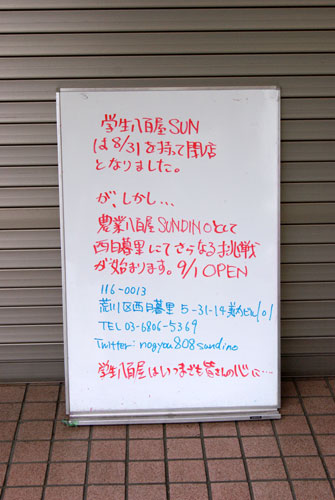 学生八百屋SUN
は8/31を持って閉店
となりました。
が、しかし...
農業八百屋SUNDINOとして
西日暮里にてさらなる挑戦
が始まります。9/1 OPEN
116-0013
荒川区西日暮里 5-31-14 101
TEL 03-6806-5369
Twitter: nogyou808sundino
学生八百屋はいつまでも皆さんの心に...